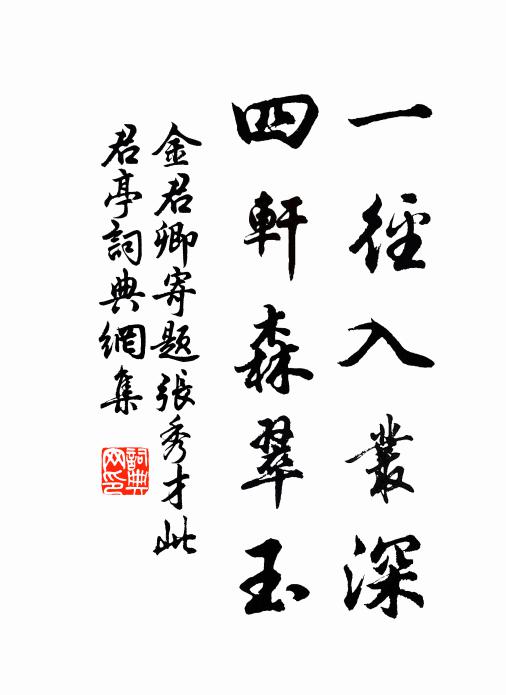 一徑入叢深
四軒森翠玉
金君卿寄題張秀才此
君亭詞典網集
詞典
网印